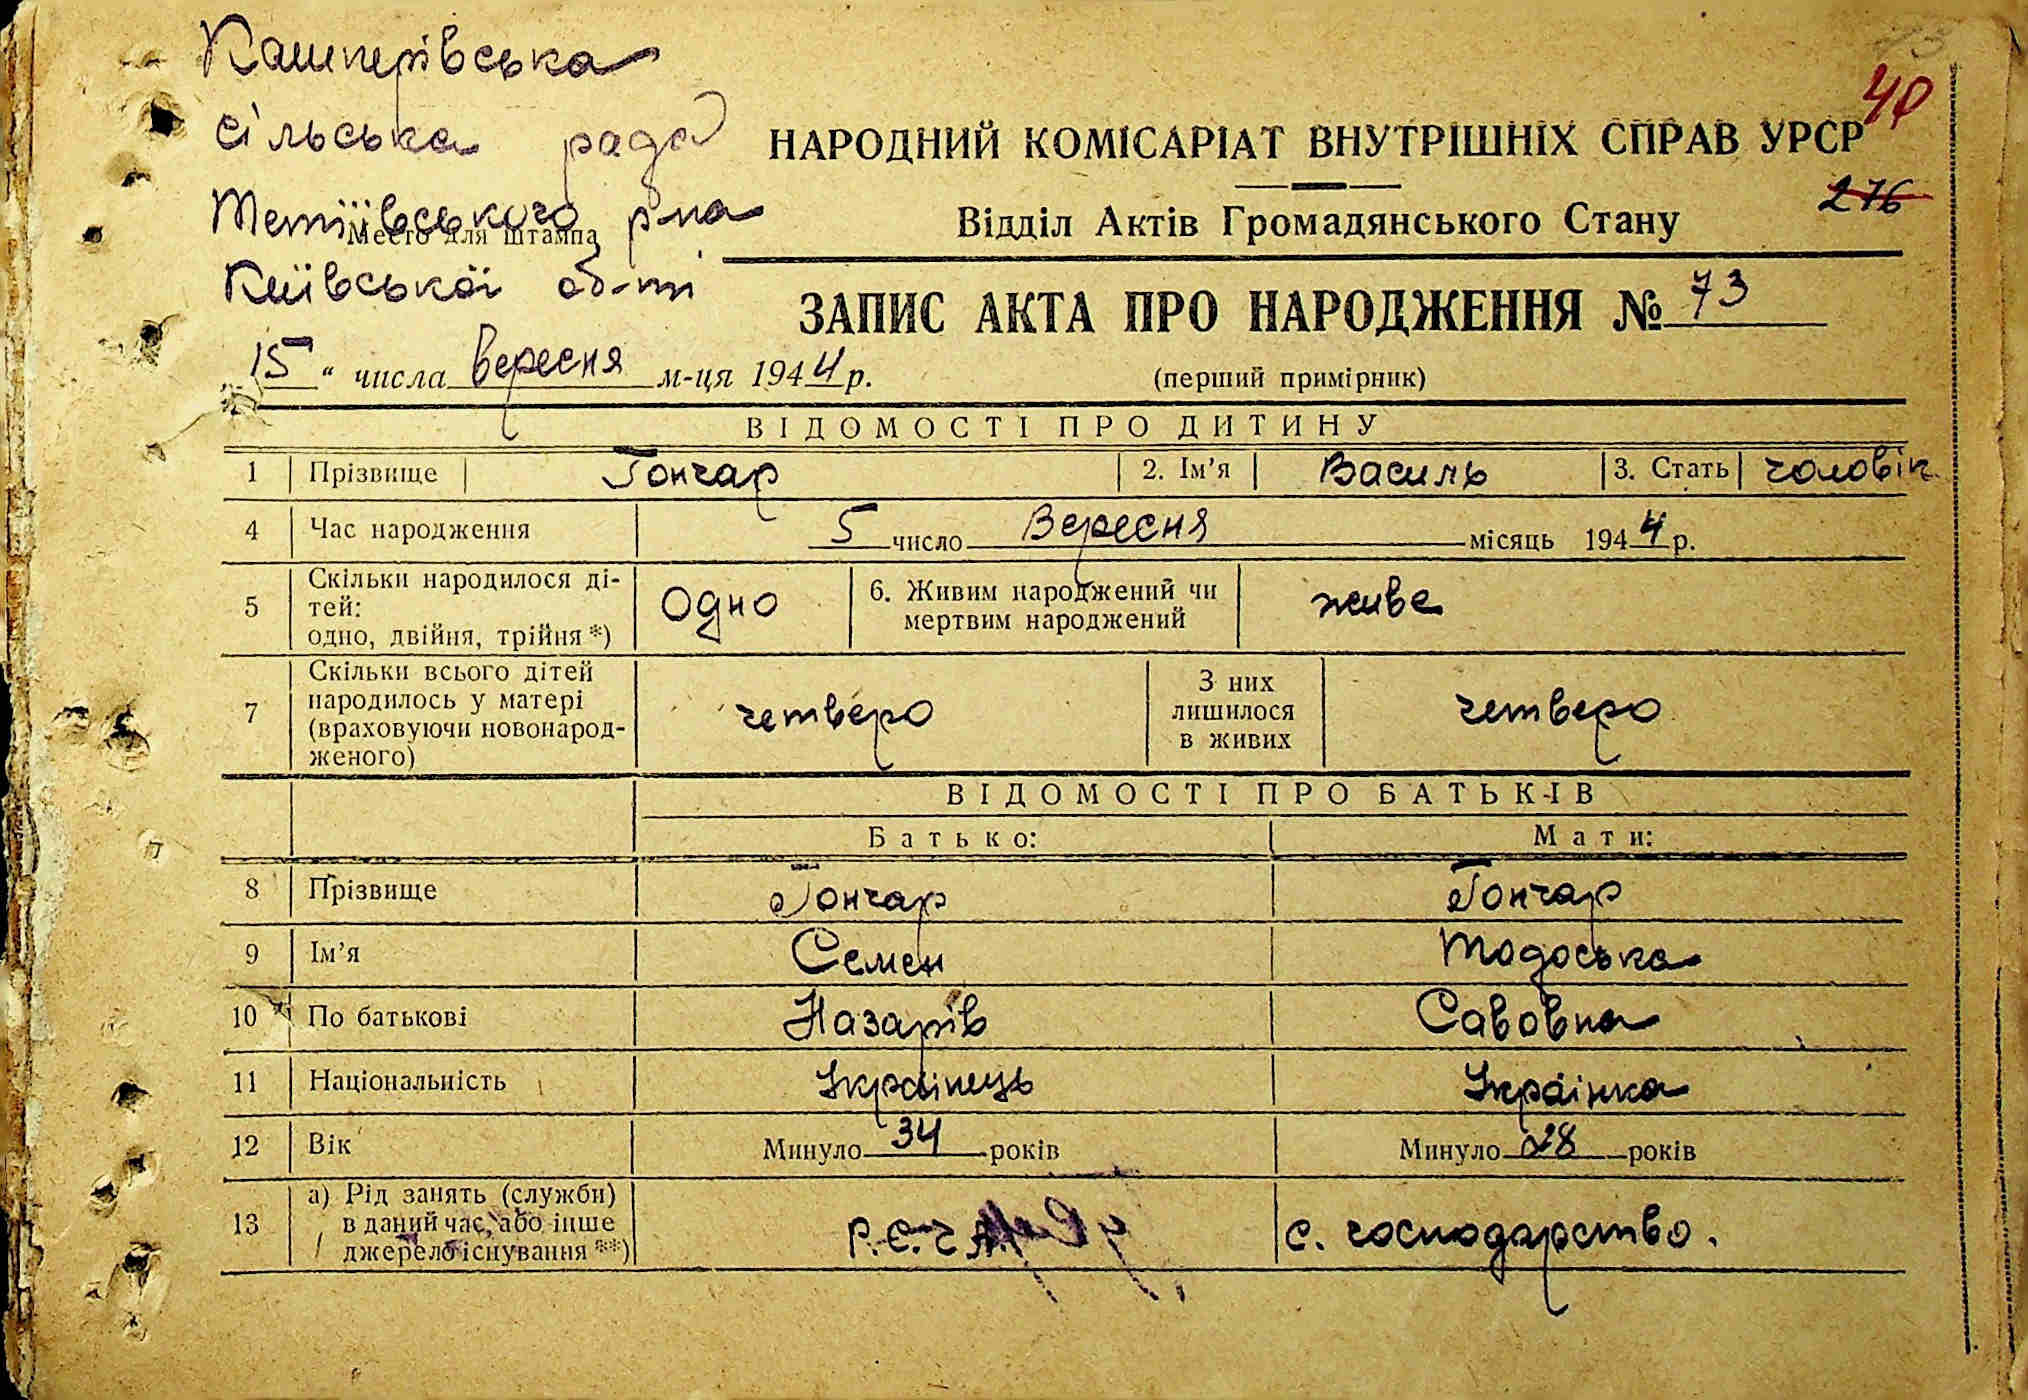 Кашперівська
сільська рада
Тетіївського р-на
Место для штампа
Київської об-ті
"15" числа вересня м-ця 1944 р.
40
НАРОДНИЙ КОМІСАРІАТ ВНУТРІШНІХ СПРАВ УРСР
276
Відділ Актів Громадянського Стану
ЗАПИС АКТА ПРО НАРОДЖЕННЯ № 73
(перший примірник)
ВІДОМОСТІ ПРО ДИТИНУ
1 Прізвище Гончар 2. Ім'я Василь 3. Стать чоловік.
4 Час народження 5 число Вересня місяць 1944 р.
5 Скільки народилося ді-
тей:
одно, двійня, трійня *)
Одно
6. Живим народжений чи
мертвим народжений
живе
7 Скільки всього дітей
народилось у матері
(враховуючи новонарод-
женого)
четверо
З них
лишилося
в живих
четверо
ВІДОМОСТІ ПРО БАТЬКІВ
Батько: Мати:
8 Прізвище Гончар Гончар
9 Ім'я Семен Тодоська
10 По батькові Назарів Савовна
11 Національність Українець Українка
12 Вік Минуло 34 років Минуло 28 років
13 а) Рід занять (служби)
в даний час, або інше
джерело існування **)
Р.С.Ч.А. с. господарство.